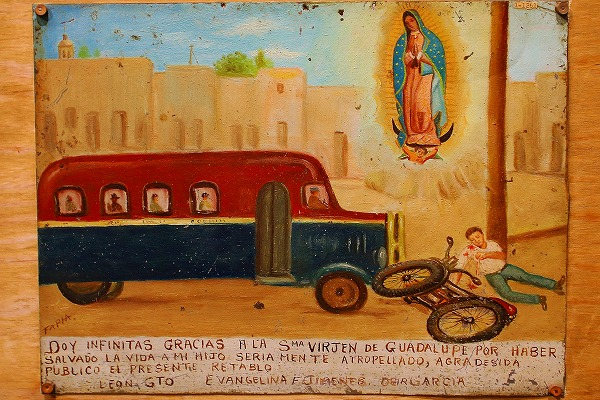 FARIA.
DOY INFINITAS GRACIAS A LA Sma VIRJEN DE GUADALUPE POR HABER
SALVADO LA VIDA A MI HIJO SERIA MENTE ATROPELLADO, AGRADESIDA
PUBLICO EL PRESENTE RETABLO
LEON. GTO EVANGELINA F. JIMENES GARCIA